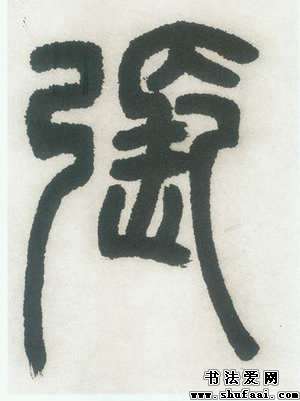 陶
书法爱网
www.shufaai.com